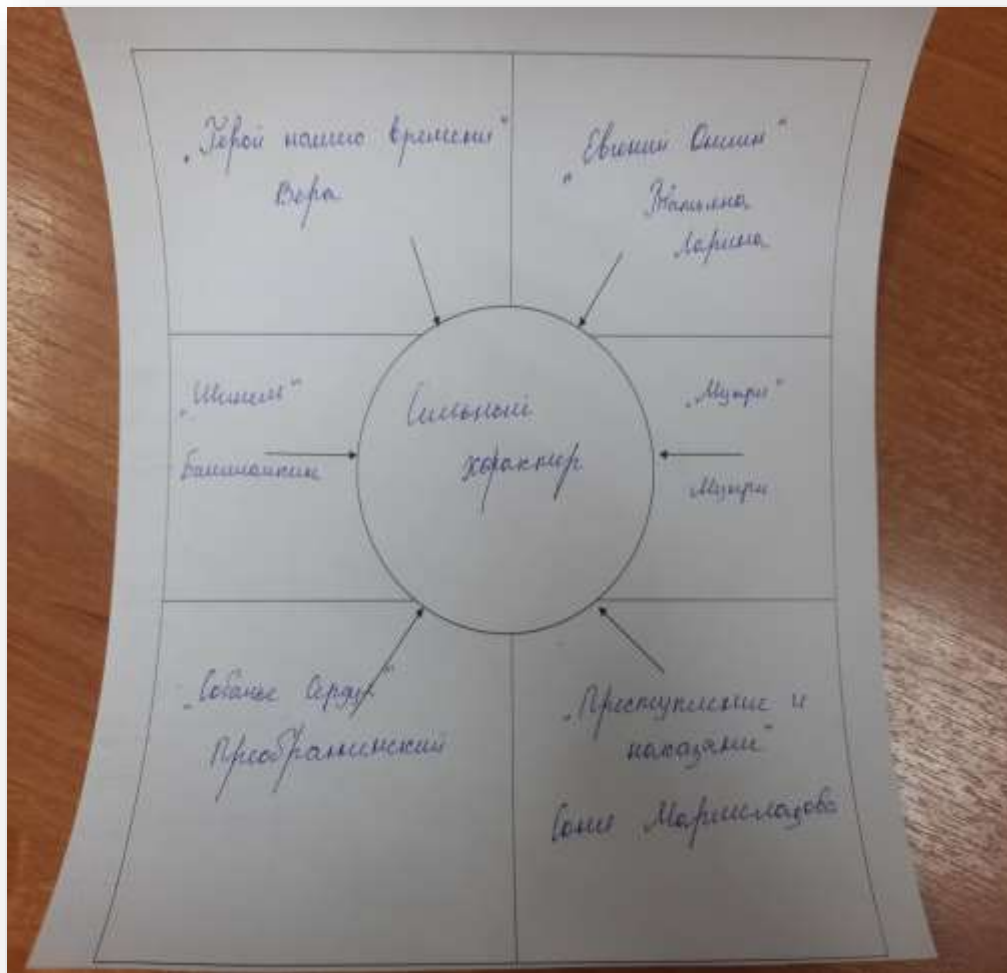 „Герой нашего времени“
Вера
„Евгений Онегин
“
Татьяна
Ларина
„Шинель“
Башмачкин
Сильный
характер
„Мцыри“
Мцыри
„Собачье Сердце“
Преображенский
„Преступление и
наказание“
Соня Мармеладова